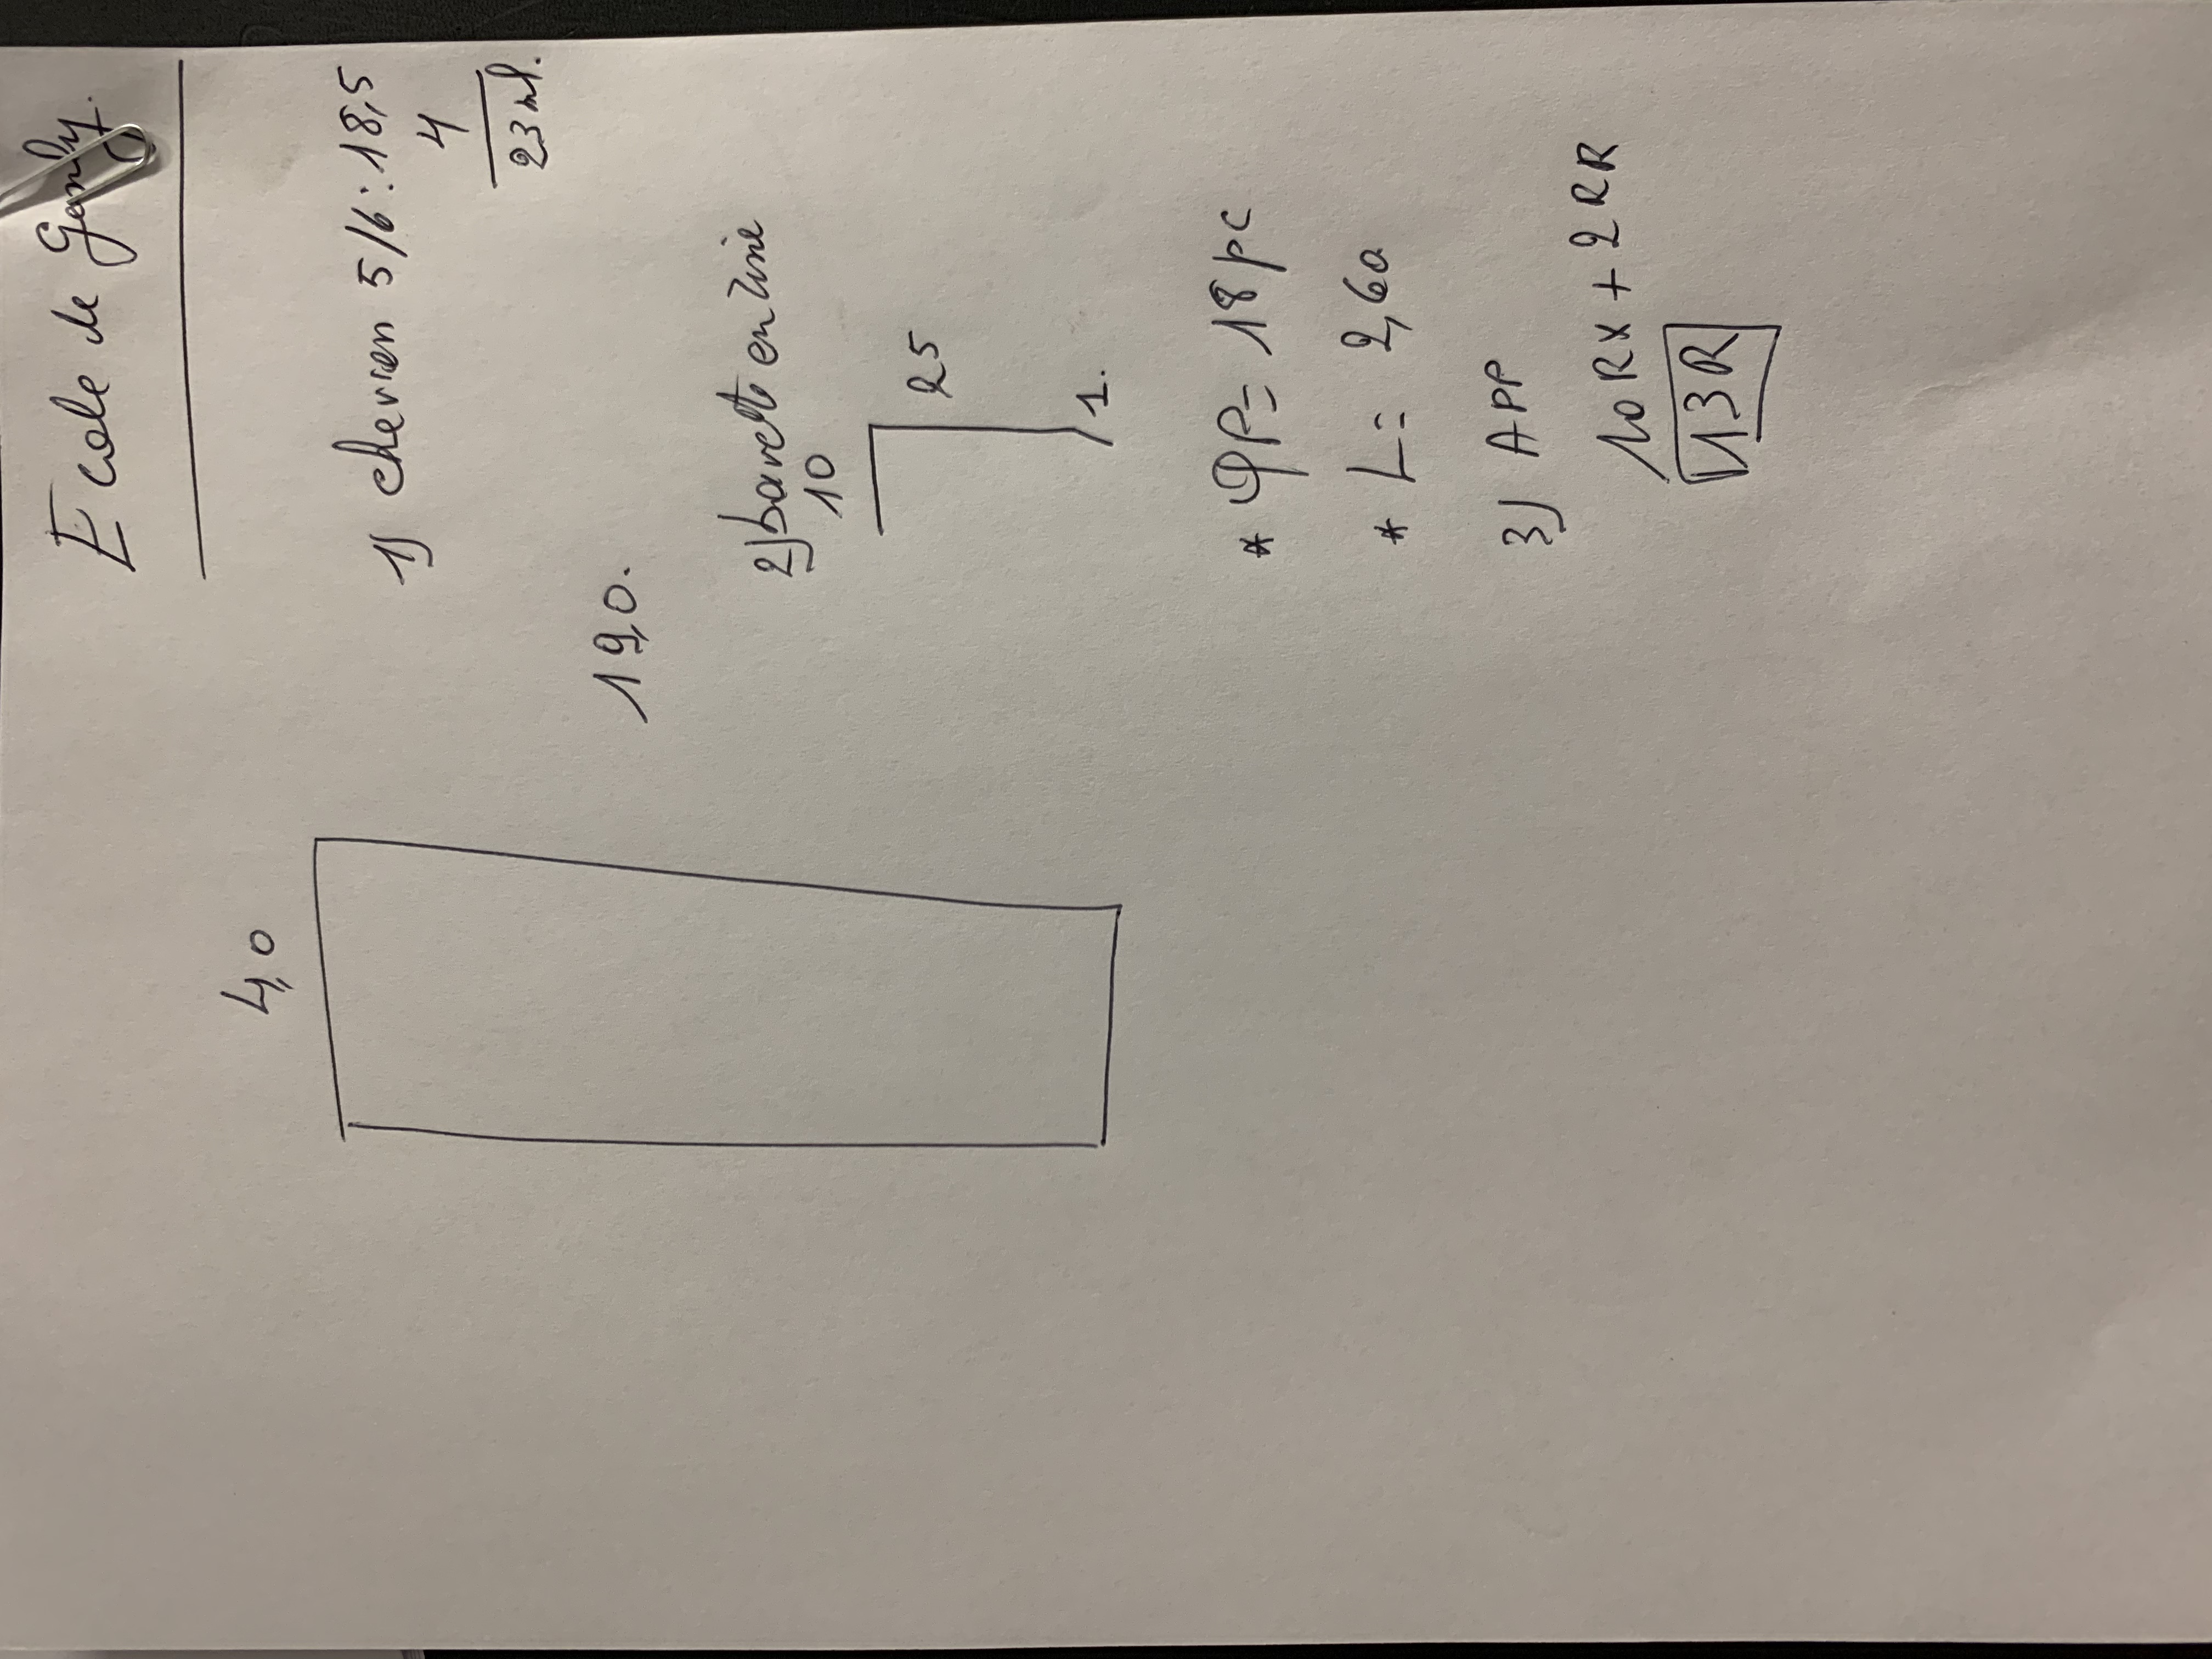 Ecole de Genly.
1) chevron 5/6 : 18,5
4
23 ml.
4,0
19,0.
2) bavette en zinc
10
25
1.
* QP = 18 pc
* L = 2,60
3) APP
10 RX + 2 RR
13 R